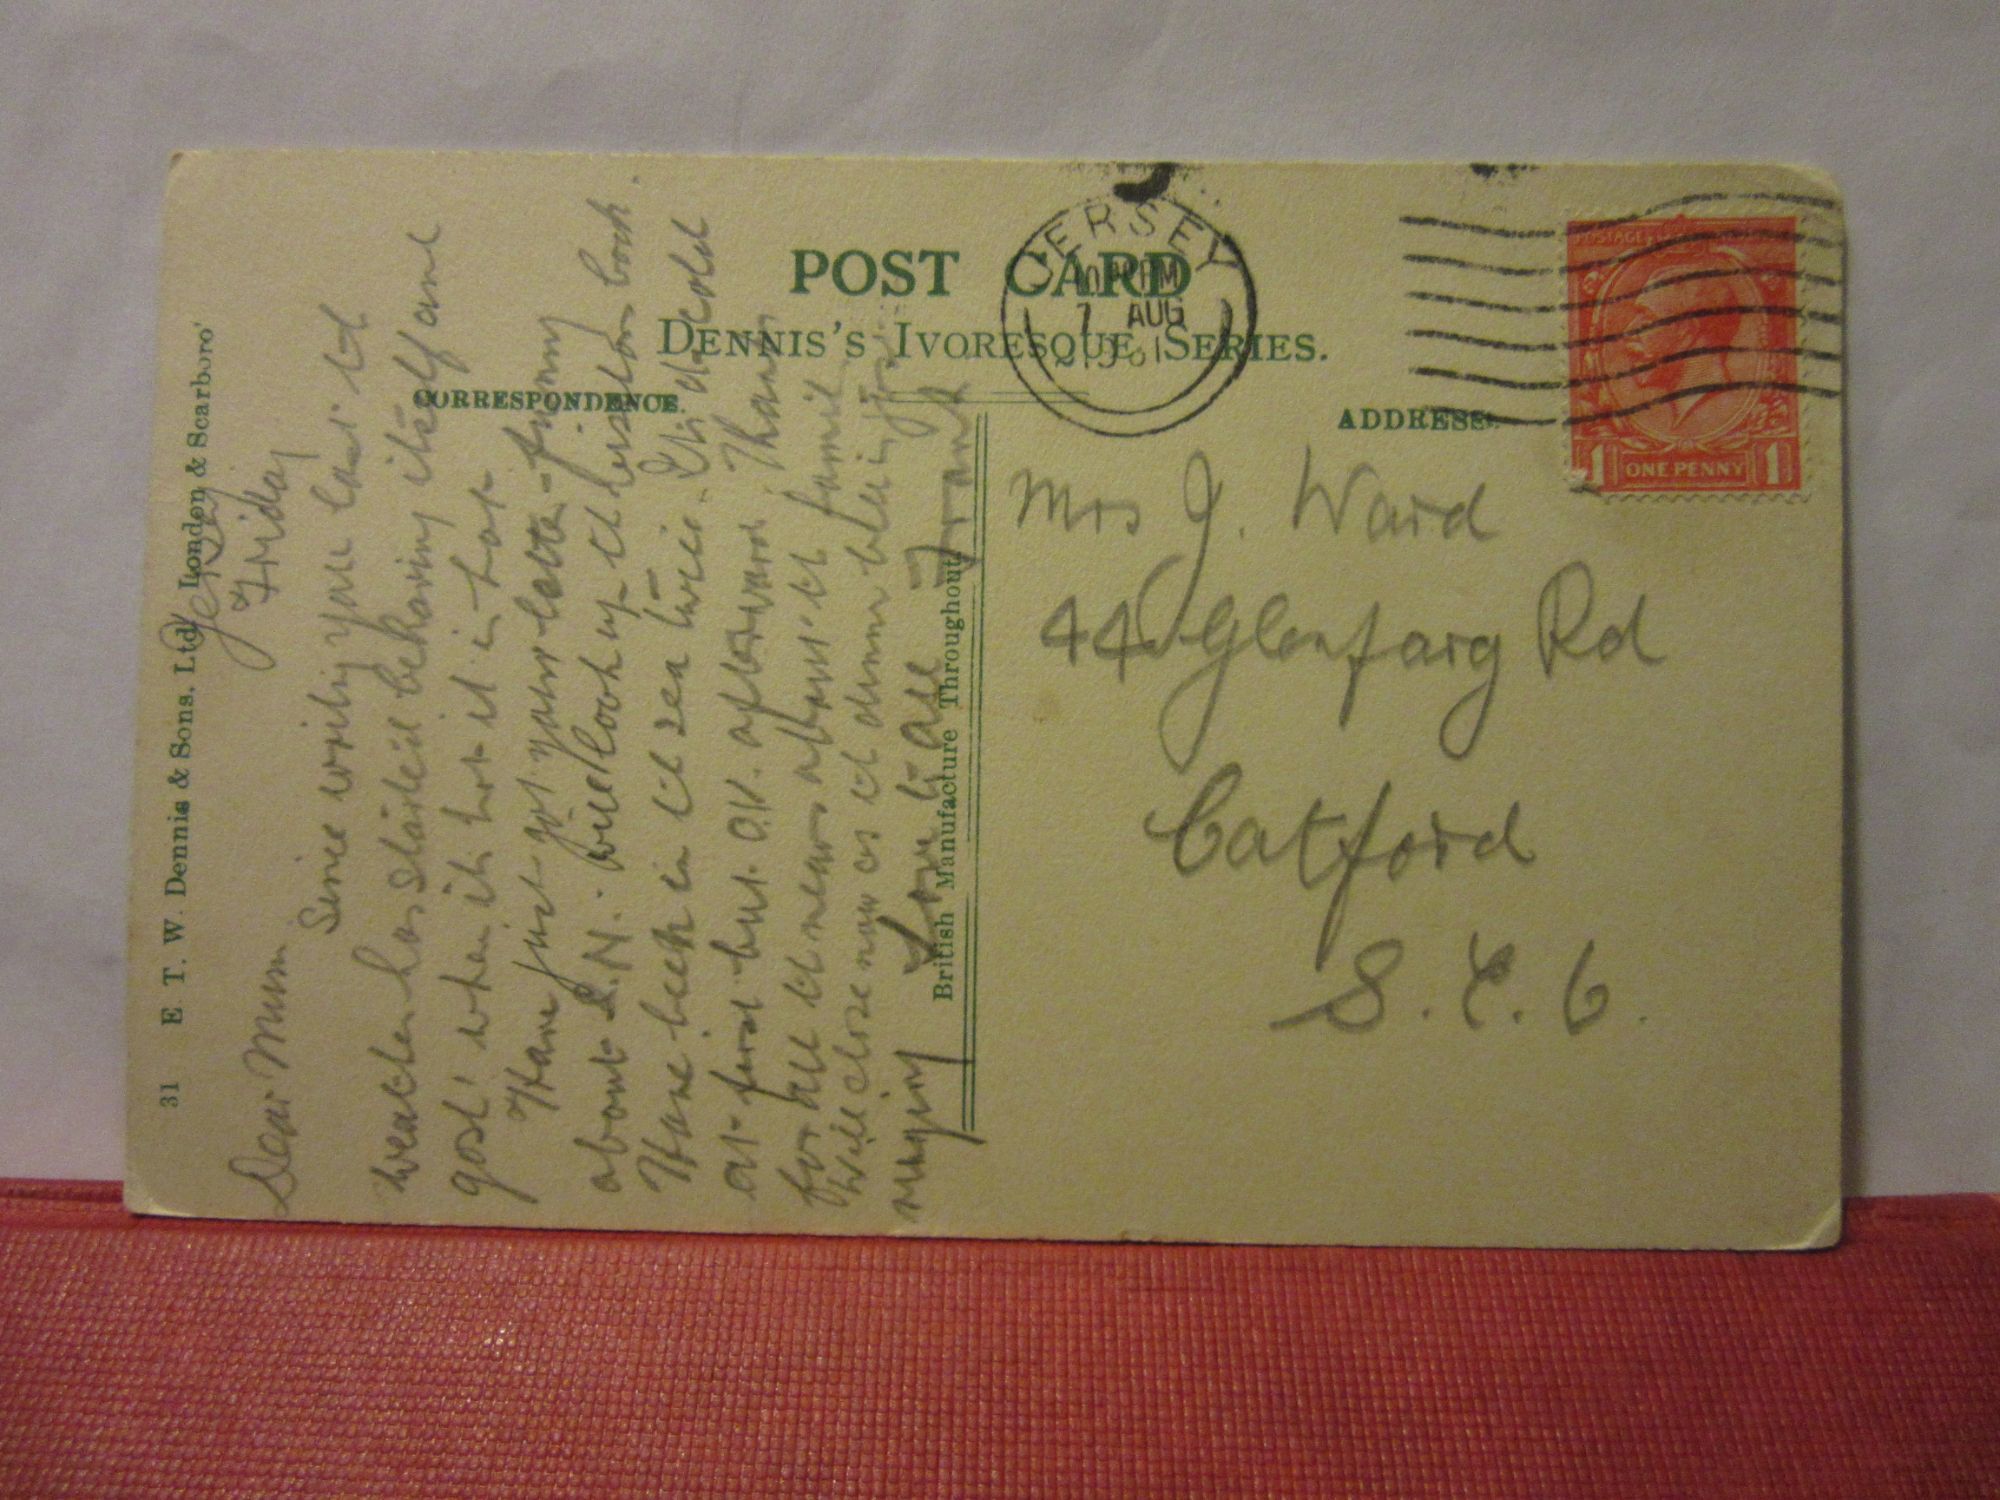 POST CARD
DENNIS'S IVORESQUE SERIES.
CORRESPONDENCE.
ADDRESS.
JERSEY
PM
7 AUG
1931
POSTAGE
1 ONE PENNY 1
31 E. T. W. Dennis & Sons, Ltd. London & Scarboro'
British Manufacture Throughout
Jersey
Friday
Dear Mum
Since writing you last
weather has started behaving itself and
gosh when it's hot it is hot
Have just got your letter - funny
about will look up book
Have been in sea twice. cold
at first but O.K. afterward. Thanks
for all news about family.
Will close now as dinner being
Love to all
Mrs J. Ward
44 Glenfarg Rd
Catford
S. E. 6.